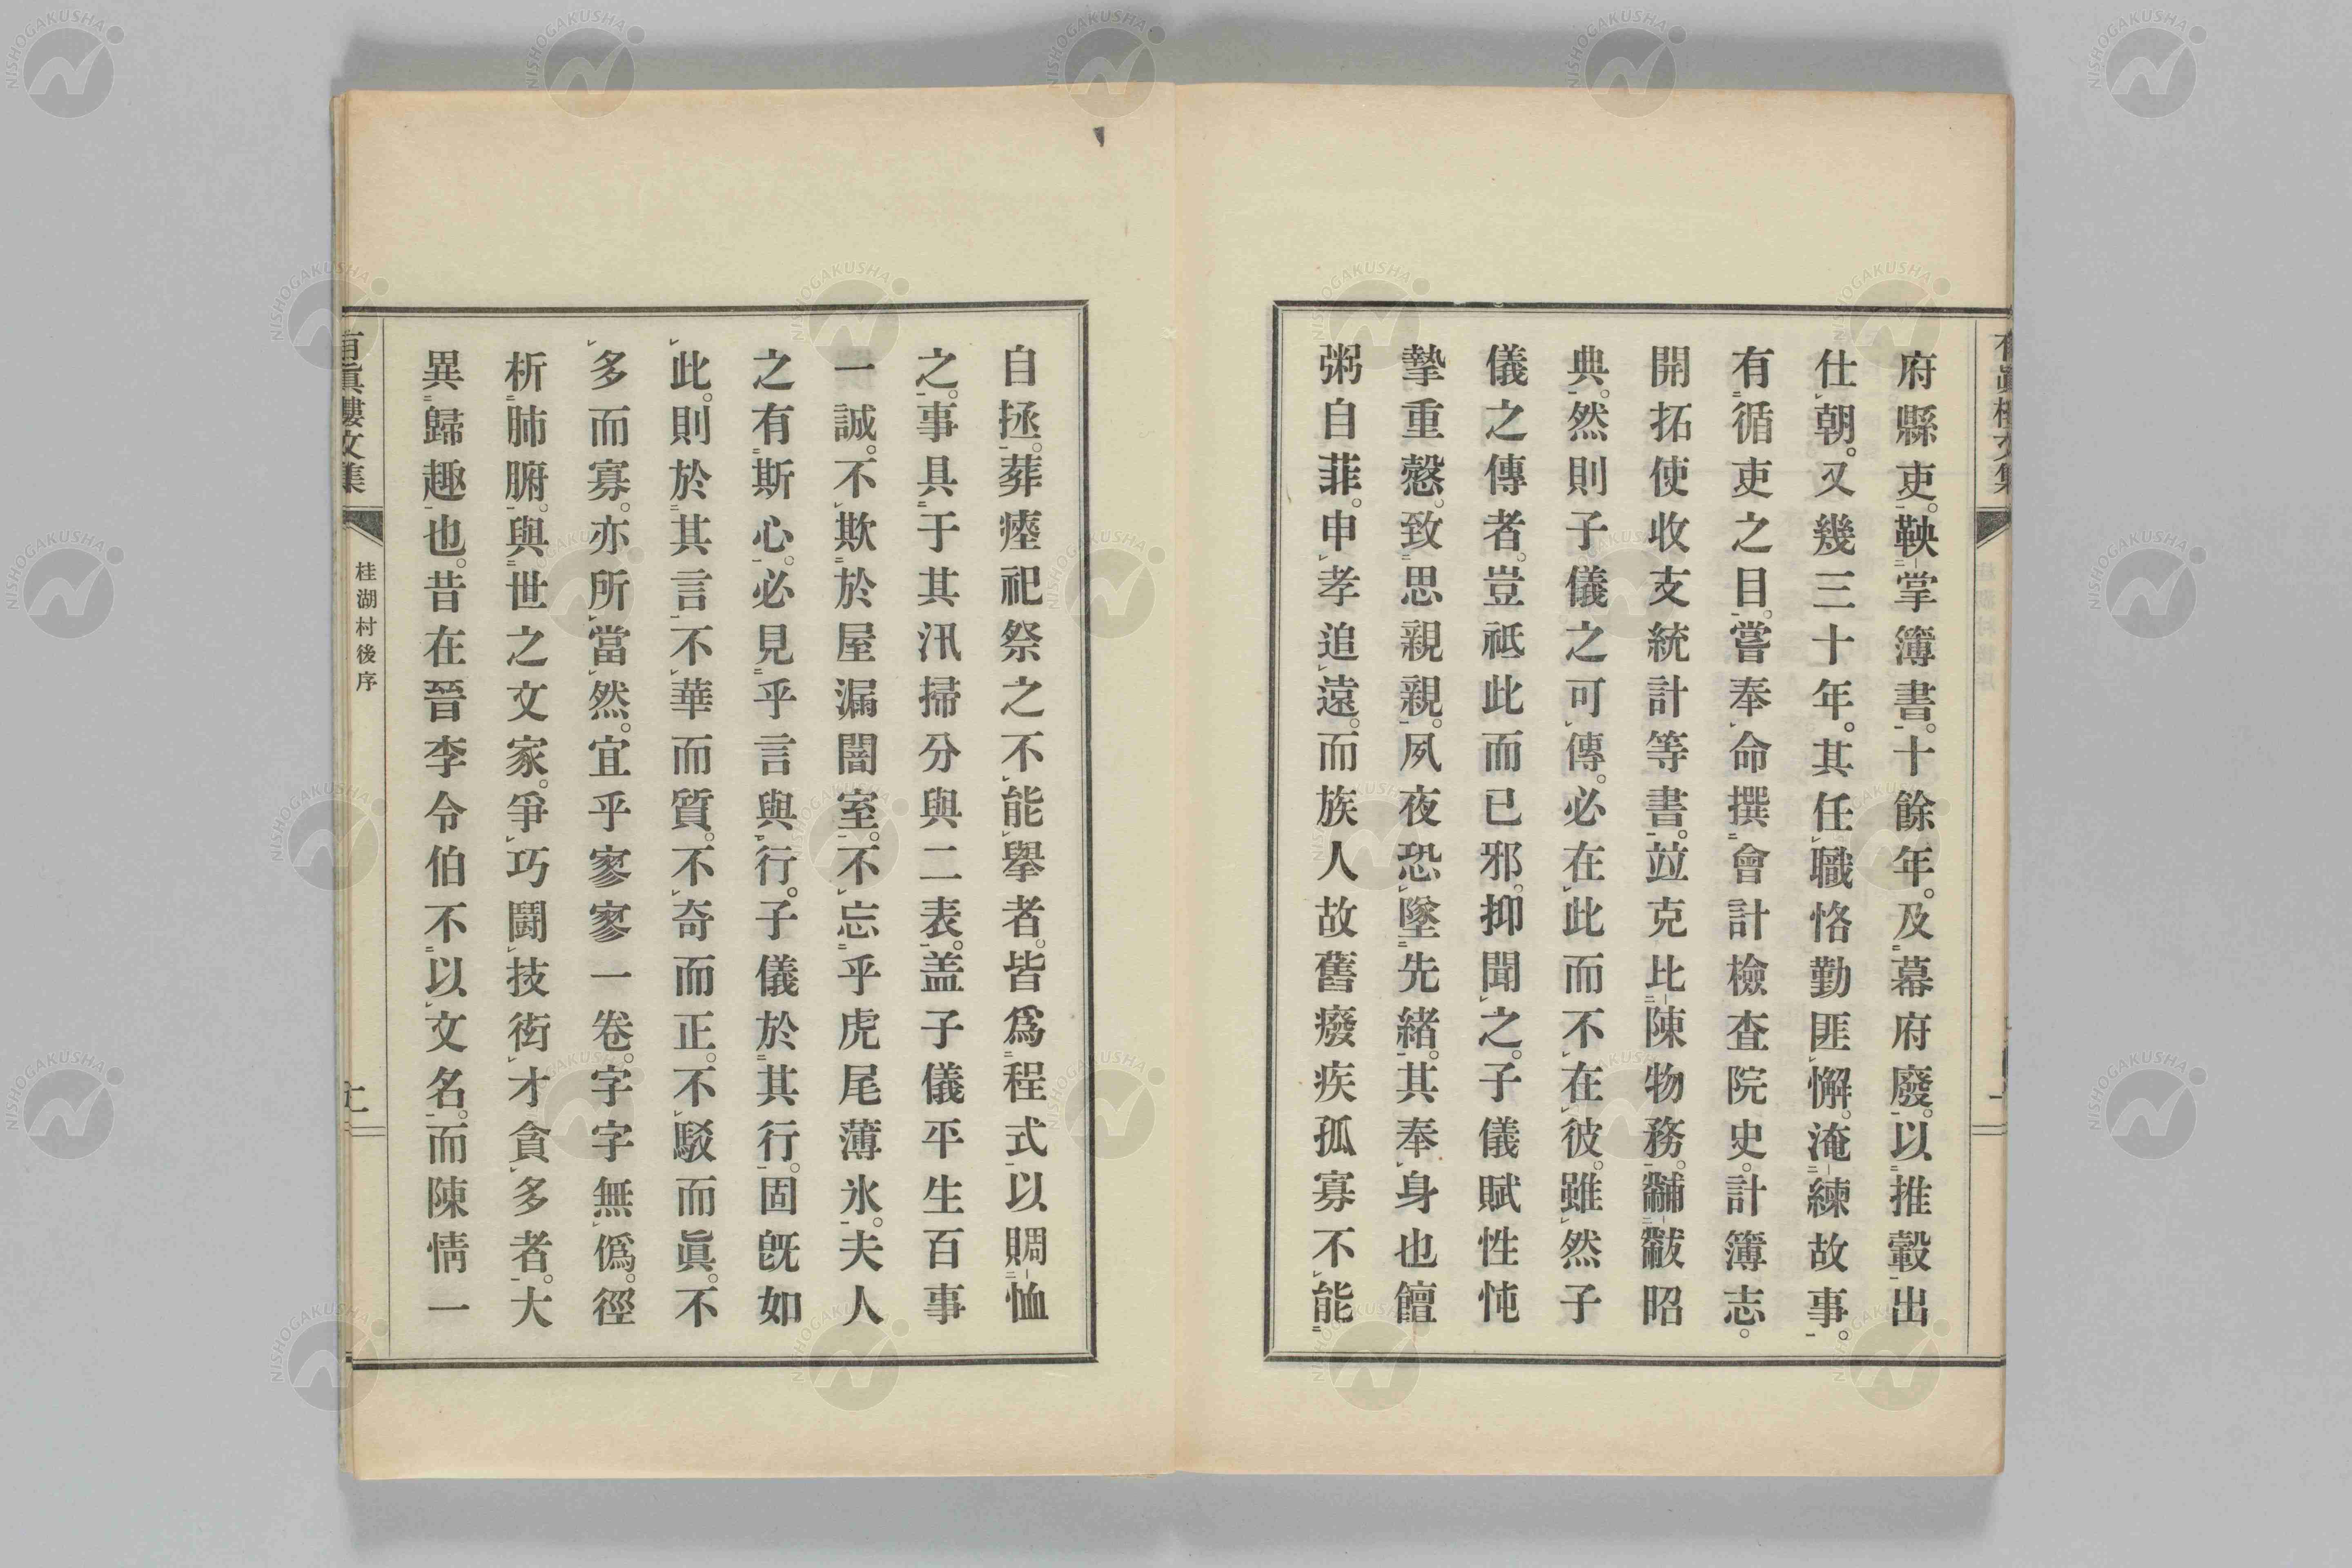 府縣吏。鞅掌簿書。十餘年。及幕府廢。以推轂出
仕朝。又幾三十年。其任職恪勤匪懈。淹練故事。
有循吏之目。嘗奉命撰會計檢査院史。計簿志。
開拓使收支統計等書。竝克比陳物務。黼黻昭
典。然則子儀之可傳。必在此而不在彼。雖然子
儀之傳者。豈祗此而已邪。抑聞之。子儀賦性忳
摯重愨。致思親親。夙夜恐墜先緒。其奉身也饘
粥自菲。申孝追遠。而族人故舊廢疾孤寡不能
自拯。葬瘞祀祭之不能擧者。皆爲程式以賙恤
之。事具于其汛掃分與二表。盖子儀平生百事
一誠。不欺於屋漏闇室。不忘乎虎尾薄氷。夫人
之有斯心。必見乎言與行。子儀於其行。固旣如
此。則於其言不華而質。不奇而正。不駁而眞。不
多而寡。亦所當然。宜乎寥寥一卷。字字無僞。徑
析肺腑。與世之文家。爭巧鬪技衒才貪多者。大
異歸趣也。昔在晉李令伯不以文名。而陳情一
有眞樓文集
桂湖村後序